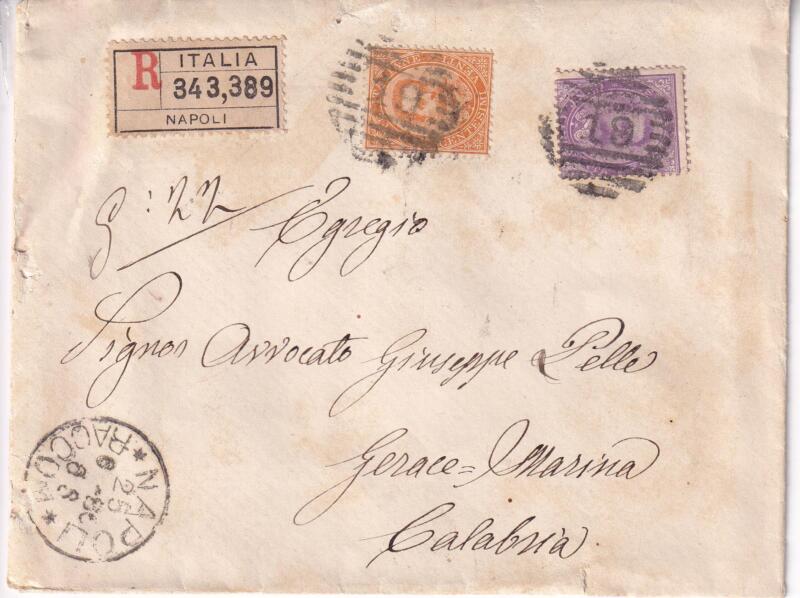 R ITALIA
343,389
NAPOLI
CENTESIMI
19
g: 22
Egregio
Signor Avvocato Giuseppe Pelle
Gerace=Marina
Calabria
* NAPOLI *
RACCOM
6
25
8 S